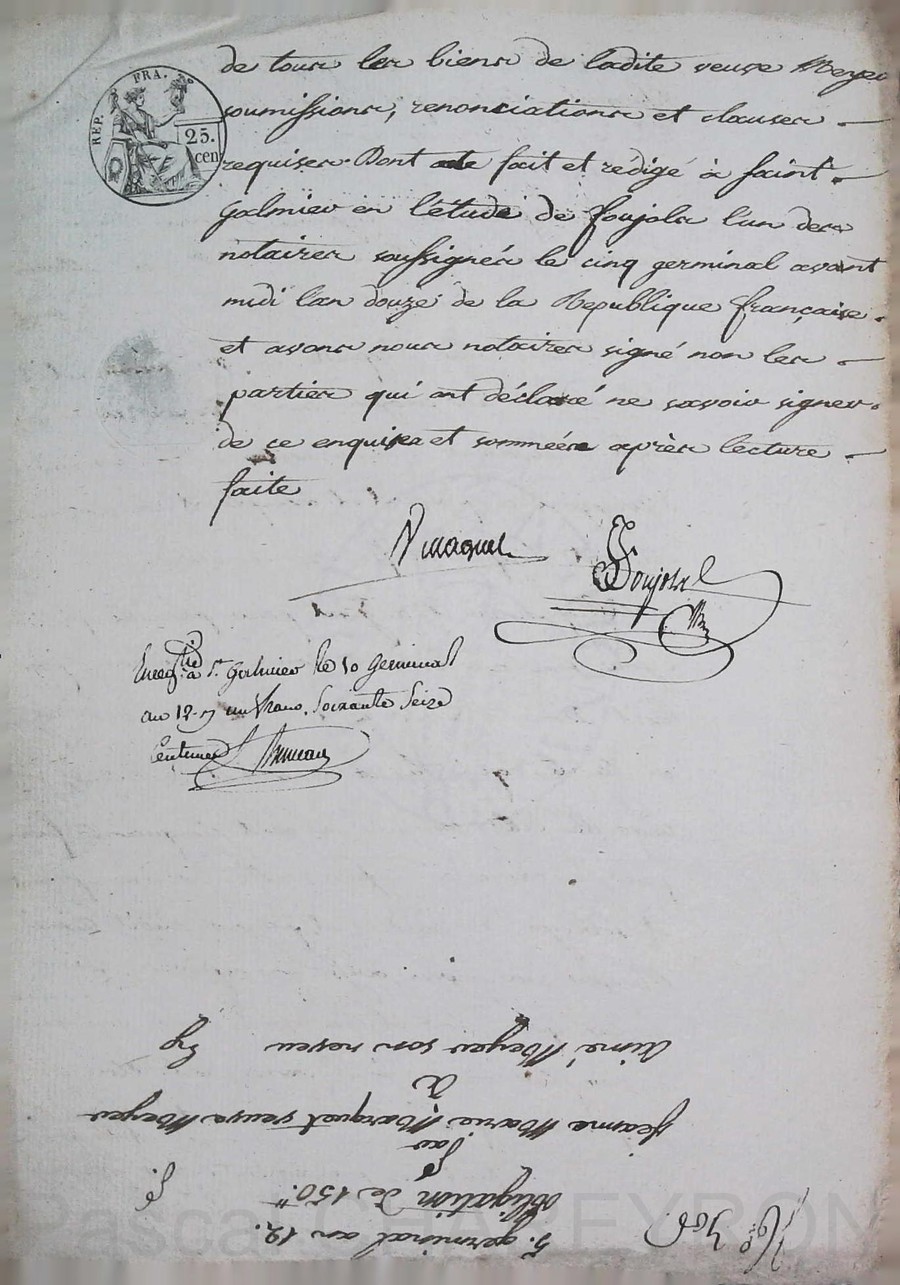 REP. FRA.
25.
cen
de tous les biens de ladite veuve Meyer
soumissions, renonciations et clauses
requises. Dont acte fait et redigé à saint
galmier en l'étude de foujols l'un des
notaires soussignés le cinq germinal avant
midi l'an douze de la Republique française
et avons nous notaires signé non les
parties qui ont déclaré ne savoir signer
de ce enquises et sommées après lecture
faite
Foujols
Enregtré à St galmier le 10 germinal
an 12. un franc. Soixante Seize
Centimes
5. germinal an 12.
obligation de 150.
par
jeanne Marie Marquet veuve Meyer
à
aimé Meyer son neveu
Pascal CHAPEYRON